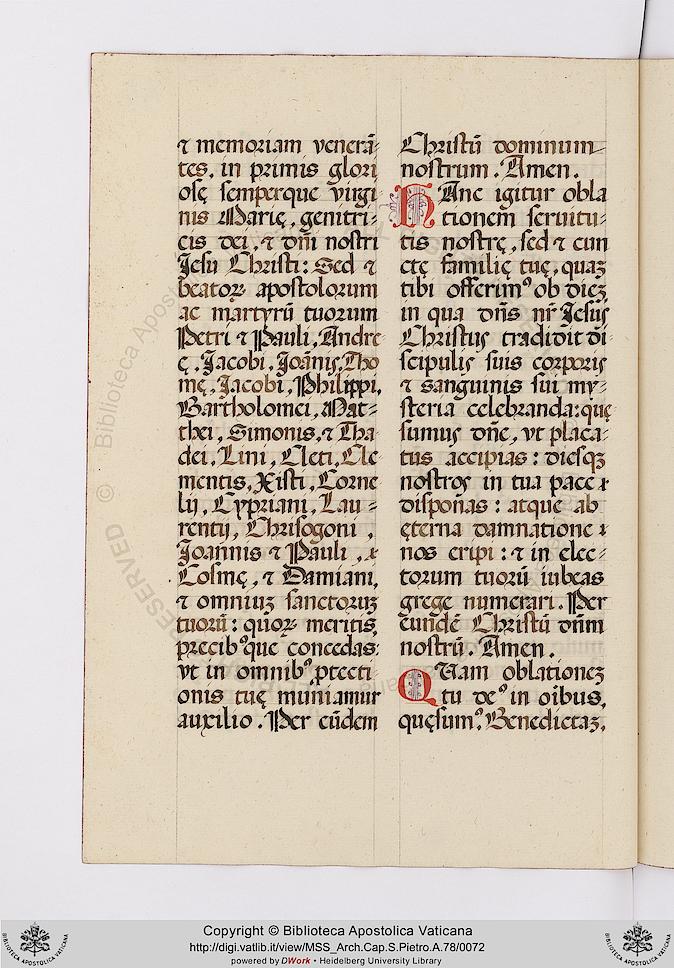 ⁊ memoriam venerā-
tes. in primis glori
osę semperque virgi
nis Marię, genitri-
cis dei, ⁊ dñi nostri
Jesu Christi: Sed ⁊
beatoꝝ apostolorum
ac martyrū tuorum
Petri ⁊ Pauli, Andre
ę, Jacobi, Joānis, Tho
mę, Jacobi, Philippi,
Bartholomei, Mat-
thei, Simonis, ⁊ Tha
dei, Lini, Cleti, Cle
mentis, Xisti, Corne
lij, Cypriani, Lau-
rentij, Chrisogoni,
Joannis ⁊ Pauli,
Cosmę, ⁊ Damiani,
⁊ omniuʒ sanctoruʒ
tuorū: quoꝝ meritis,
precibꝰque concedas:
vt in omnibꝰ ꝓtecti
onis tuę muniamur
auxilio. Per eūdem
Christū dominum
nostrum. Amen.
HAnc igitur obla
tionem seruitu-
tis nostrę, sed ⁊ cun
ctę familię tuę, quaʒ
tibi offerimꝰ ob dieʒ,
in qua dñs nr̄ Jesus
Christus tradidit di
scipulis suis corporis
⁊ sanguinis sui my-
steria celebranda: quę
sumus dñe, vt placa-
tus accipias: diesqʒ
nostros in tua pace
disponas: atque ab
ęterna damnatione
nos eripi: ⁊ in elec-
torum tuorū iubeas
grege numerari. Per
eundē Christū dñm
nostrū. Amen.
QUam oblationeʒ
tu deꝰ in oībus,
quęsumꝰ, Benedictaʒ,
© Biblioteca Apostolica Vaticana
Copyright © Biblioteca Apostolica Vaticana
http://digi.vatlib.it/view/MSS_Arch.Cap.S.Pietro.A.78/0072
powered by DWork • Heidelberg University Library